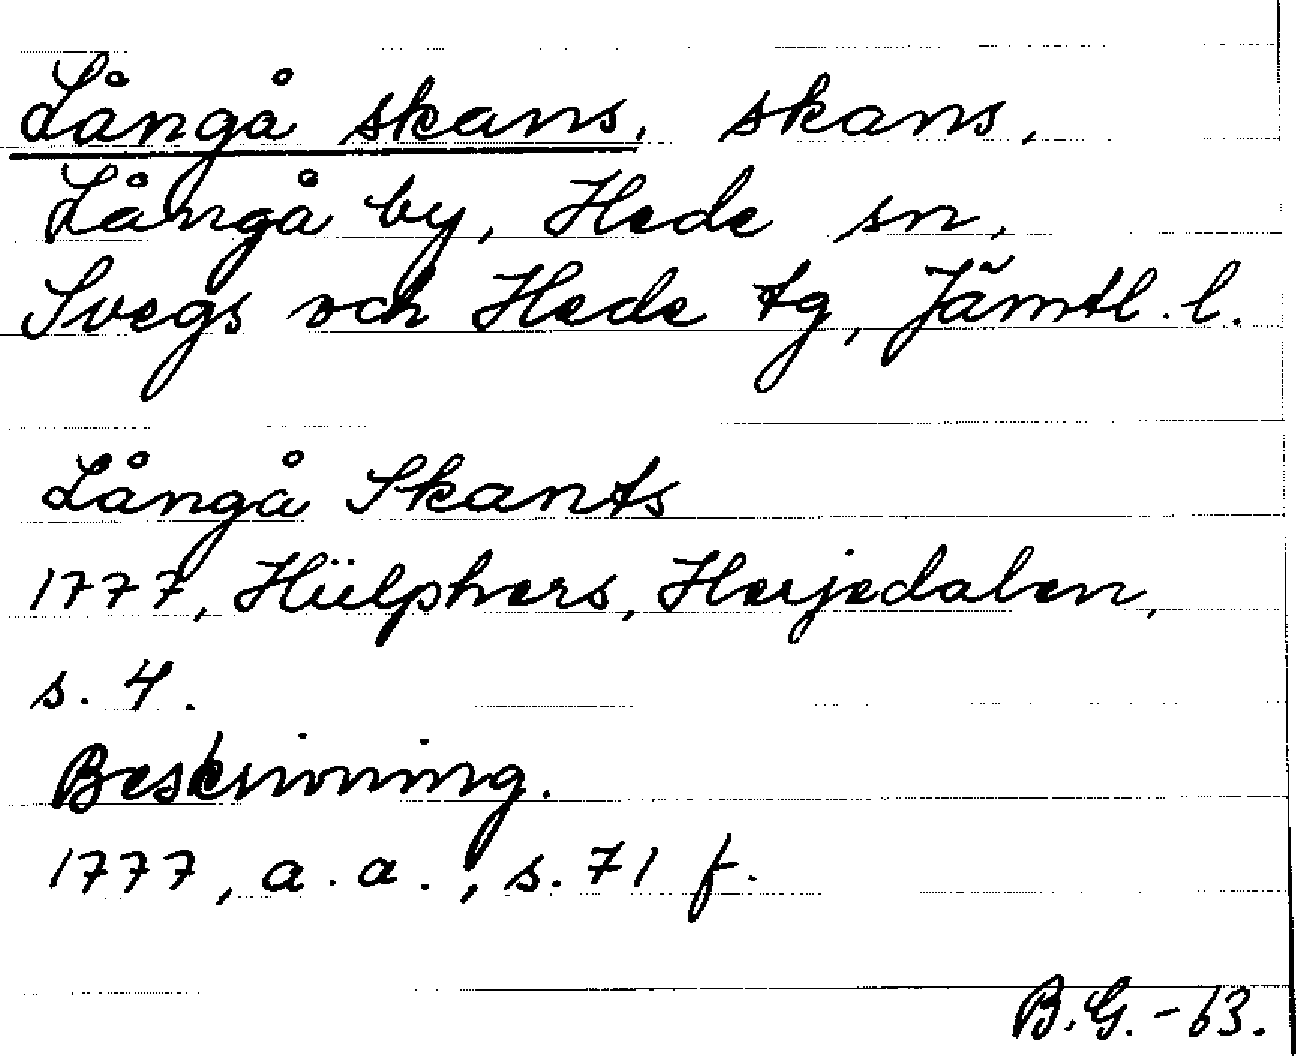 Långå skans, skans,
Långå by, Hede sn,
Svegs och Hede tg, Jämtl. l.
Långå Skants
1777, Hülphers, Herjedalen,
s. 4.
Beskrivning.
1777, a.a., s. 71 f.
B.G.-63.